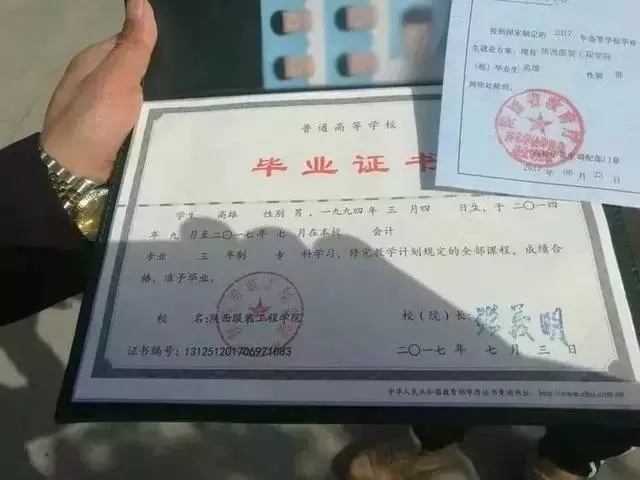 按照国家制定的 2017 年高等学校毕业
生就业方案,现有 陕西服装工程学院
(校)毕业生 高雄 性别 男
到你处报到。
陕西省教育厅
2017 06 23
普通高等学校
毕业证书
学生 高雄 性别 男,一九九四年 三 月四 日生,于 二〇一四
年 九 月至二〇一七年 七 月在本校 会计
专业 三 年制 专 科学习,修完教学计划规定的全部课程,成绩合
格,准予毕业。
校 名:陕西服装工程学院
校(院)长:张羲明
证书编号:131251201706971083
二〇一七年 七 月 三 日
中华人民共和国教育部学历证书查询网址:http://www.chsi.com.cn